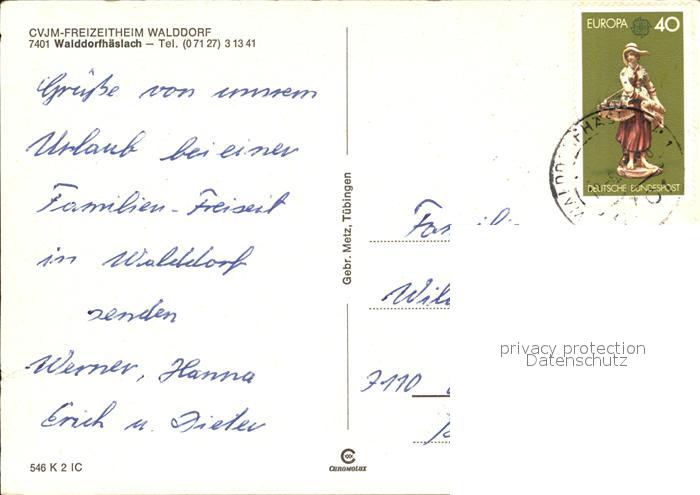 CVJM-FREIZEITHEIM WALDDORF
7401 Walddorfhäslach — Tel. (0 71 27) 3 13 41
Grüße von unserem
Urlaub bei einer
Familien-Freizeit
in Walddorf
senden
Werner, Hanna
Erich u. Dieter
546 K 2 IC
Gebr. Metz, Tübingen
CHROMOLUX
EUROPA 40
DEUTSCHE BUNDESPOST
7110
privacy protection
Datenschutz